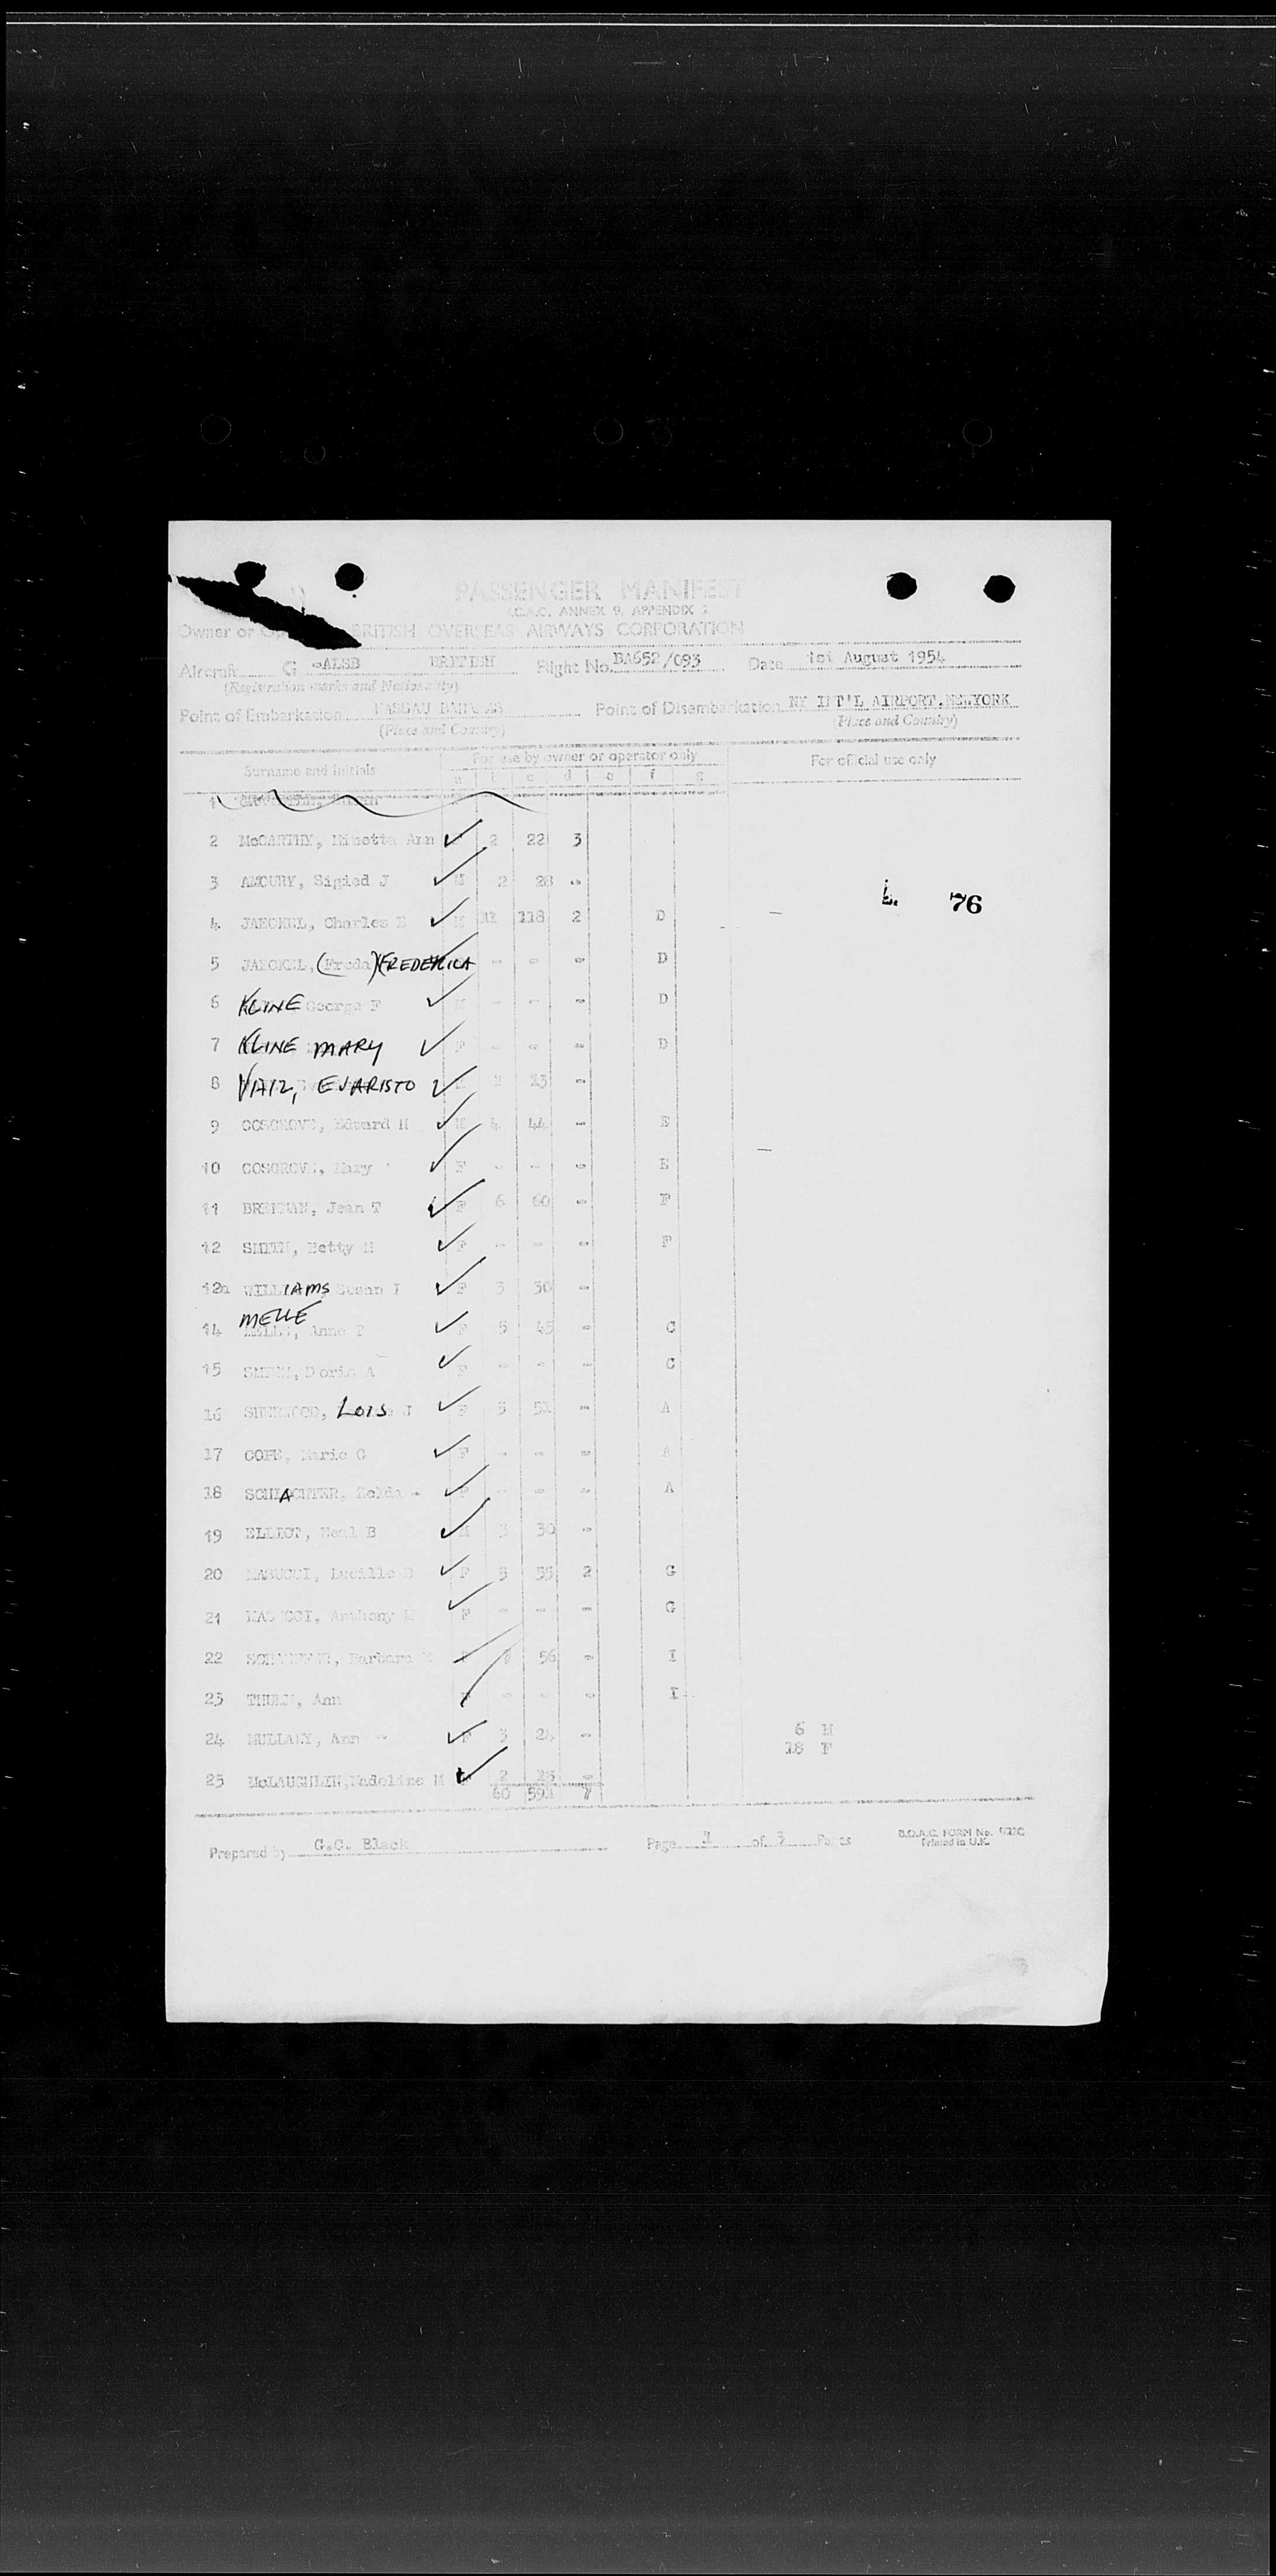 PASSENGER MANIFEST
I.C.A.O. ANNEX 9, APPENDIX
Owner or BRITISH OVERSEAS AIRWAYS CORPORATION
Aircraft G -ALSB BRITISH Flight No. BA652/093 Date 1st August 1954
(Registration marks and Nationality)
Point of Embarkation NASSAU BAHAMAS Point of Disembarkation NY INT'L AIRPORT, NEWYORK
(Place and Country) (Place and Country)
For use by owner or operator only
Surname and Initials For official use only
a b c d e f g
1
2 McCARTHY, Minetta Ann 2 22 3
3 AMOURY, Sigied J M 2 28 -
4 JAECKEL, Charles E M 11 118 2 D
76
5 JAECKEL, (Freda) FREDERICA - - - D
6 KLINE George F M - - - D
7 KLINE MARY F - - - D
8 VIAIZ, EVARISTO 13 -
9 COSGROVE, Edward H M 4 44 - E
10 COSGROVE, Mary F - - - E
11 BRENNAN, Jean T F 6 60 - F
12 SMITH, Betty M F - - - F
12a WILLIAMS Susan I F 3 30 -
MELLE
14 Anne F 5 45 - C
15 SMITH, Doris A F - - - C
16 SHERWOOD, LOIS J F 5 51 - A
17 COPE, Marie C F - - - A
18 SCHLACHTER, Zelda - F - - - A
19 ELLIOT, Neal B M 3 30 -
20 MASUCCI, Lucille F 5 55 2 G
21 MASUCCI, Anthony M F - - - G
22 Barbara F 56 - I
23 Ann F - - - I
24 MULLANY, Ann - F 3 24 -
6 M
18 F
25 McLAUGHLIN, Madeline M 2 -
60 7
Prepared by G.C. Black Page 1 of 3 Pages
B.O.A.C. FORM No.
Printed in U.K.